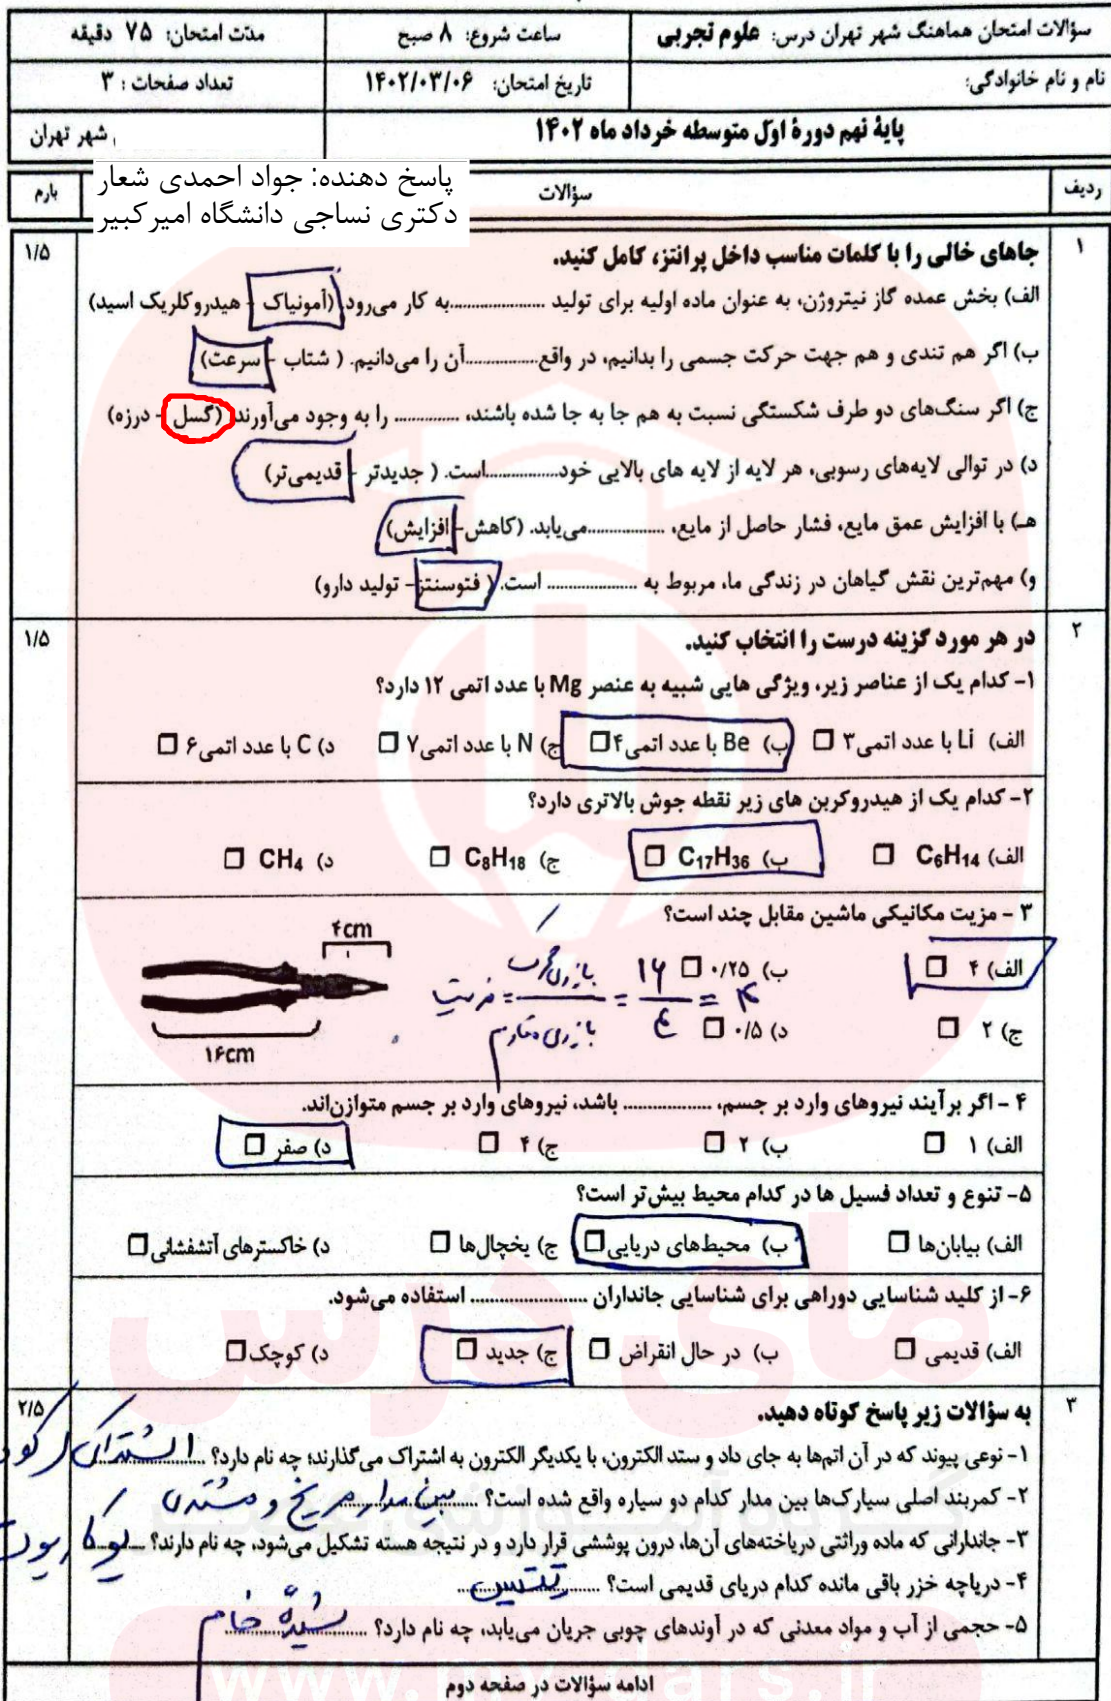 سؤالات امتحان هماهنگ شهر تهران درس: علوم تجربی
ساعت شروع: ۸ صبح
مدّت امتحان: ۷۵ دقیقه
نام و نام خانوادگی:
تاریخ امتحان: ۱۴۰۲/۰۳/۰۶
تعداد صفحات : ۳
پایهٔ نهم دورهٔ اول متوسطه خرداد ماه ۱۴۰۲
شهر تهران
پاسخ دهنده: جواد احمدی شعار
دکتری نساجی دانشگاه امیرکبیر
ردیف
سؤالات
بارم
۱
جاهای خالی را با کلمات مناسب داخل پرانتز، کامل کنید.
۱/۵
الف) بخش عمده گاز نیتروژن، به عنوان ماده اولیه برای تولید ....................به کار می‌رود. (آمونیاک - هیدروکلریک اسید)
ب) اگر هم تندی و هم جهت حرکت جسمی را بدانیم، در واقع................آن را می‌دانیم. ( شتاب - سرعت)
ج) اگر سنگ‌های دو طرف شکستگی نسبت به هم جا به جا شده باشند، .............. را به وجود می‌آورند. (گسل - درزه)
د) در توالی لایه‌های رسوبی، هر لایه از لایه های بالایی خود................است. ( جدیدتر - قدیمی‌تر)
هـ) با افزایش عمق مایع، فشار حاصل از مایع، .................می‌یابد. (کاهش- افزایش)
و) مهم‌ترین نقش گیاهان در زندگی ما، مربوط به ................... است. ( فتوسنتز- تولید دارو)
۲
در هر مورد گزینه درست را انتخاب کنید.
۱/۵
۱- کدام یک از عناصر زیر، ویژگی هایی شبیه به عنصر Mg با عدد اتمی ۱۲ دارد؟
الف) Li با عدد اتمی۳ ☐ ب) Be با عدد اتمی۴ ☐ ج) N با عدد اتمی۷ ☐ د) C با عدد اتمی۶ ☐
۲- کدام یک از هیدروکربن های زیر نقطه جوش بالاتری دارد؟
الف) C₆H₁₄ ☐ ب) C₁₇H₃₆ ☐ ج) C₈H₁₈ ☐ د) CH₄ ☐
۳ - مزیت مکانیکی ماشین مقابل چند است؟
۴cm
الف) ۴ ☐ ب) ۰/۲۵ ☐
مزیت = بازوی محرک / بازوی مقاوم = ۱۶ / ۴ = ۴
ج) ۲ ☐ د) ۰/۵ ☐
۱۶cm
۴ - اگر برآیند نیروهای وارد بر جسم، .................. باشد، نیروهای وارد بر جسم متوازن‌اند.
الف) ۱ ☐ ب) ۲ ☐ ج) ۴ ☐ د) صفر ☐
۵- تنوع و تعداد فسیل ها در کدام محیط بیش‌تر است؟
الف) بیابان‌ها ☐ ب) محیط‌های دریایی ☐ ج) یخچال‌ها ☐ د) خاکسترهای آتشفشانی ☐
۶- از کلید شناسایی دوراهی برای شناسایی جانداران ........................ استفاده می‌شود.
الف) قدیمی ☐ ب) در حال انقراض ☐ ج) جدید ☐ د) کوچک ☐
۳
به سؤالات زیر پاسخ کوتاه دهید.
۲/۵
۱- نوعی پیوند که در آن اتم‌ها به جای داد و ستد الکترون، با یکدیگر الکترون به اشتراک می‌گذارند؛ چه نام دارد؟ اشتراکی
۲- کمربند اصلی سیارک‌ها بین مدار کدام دو سیاره واقع شده است؟ بین مدار مریخ و مشتری
۳- جاندارانی که ماده وراثتی دریاخته‌های آن‌ها، درون پوششی قرار دارد و در نتیجه هسته تشکیل می‌شود، چه نام دارند؟ یوکاریوت
۴- دریاچه خزر باقی مانده کدام دریای قدیمی است؟ تتیس
۵- حجمی از آب و مواد معدنی که در آوندهای چوبی جریان می‌یابد، چه نام دارد؟ شیرهٔ خام
ادامه سؤالات در صفحه دوم
مای درس
گروه آموزشی
www.my-dars.ir